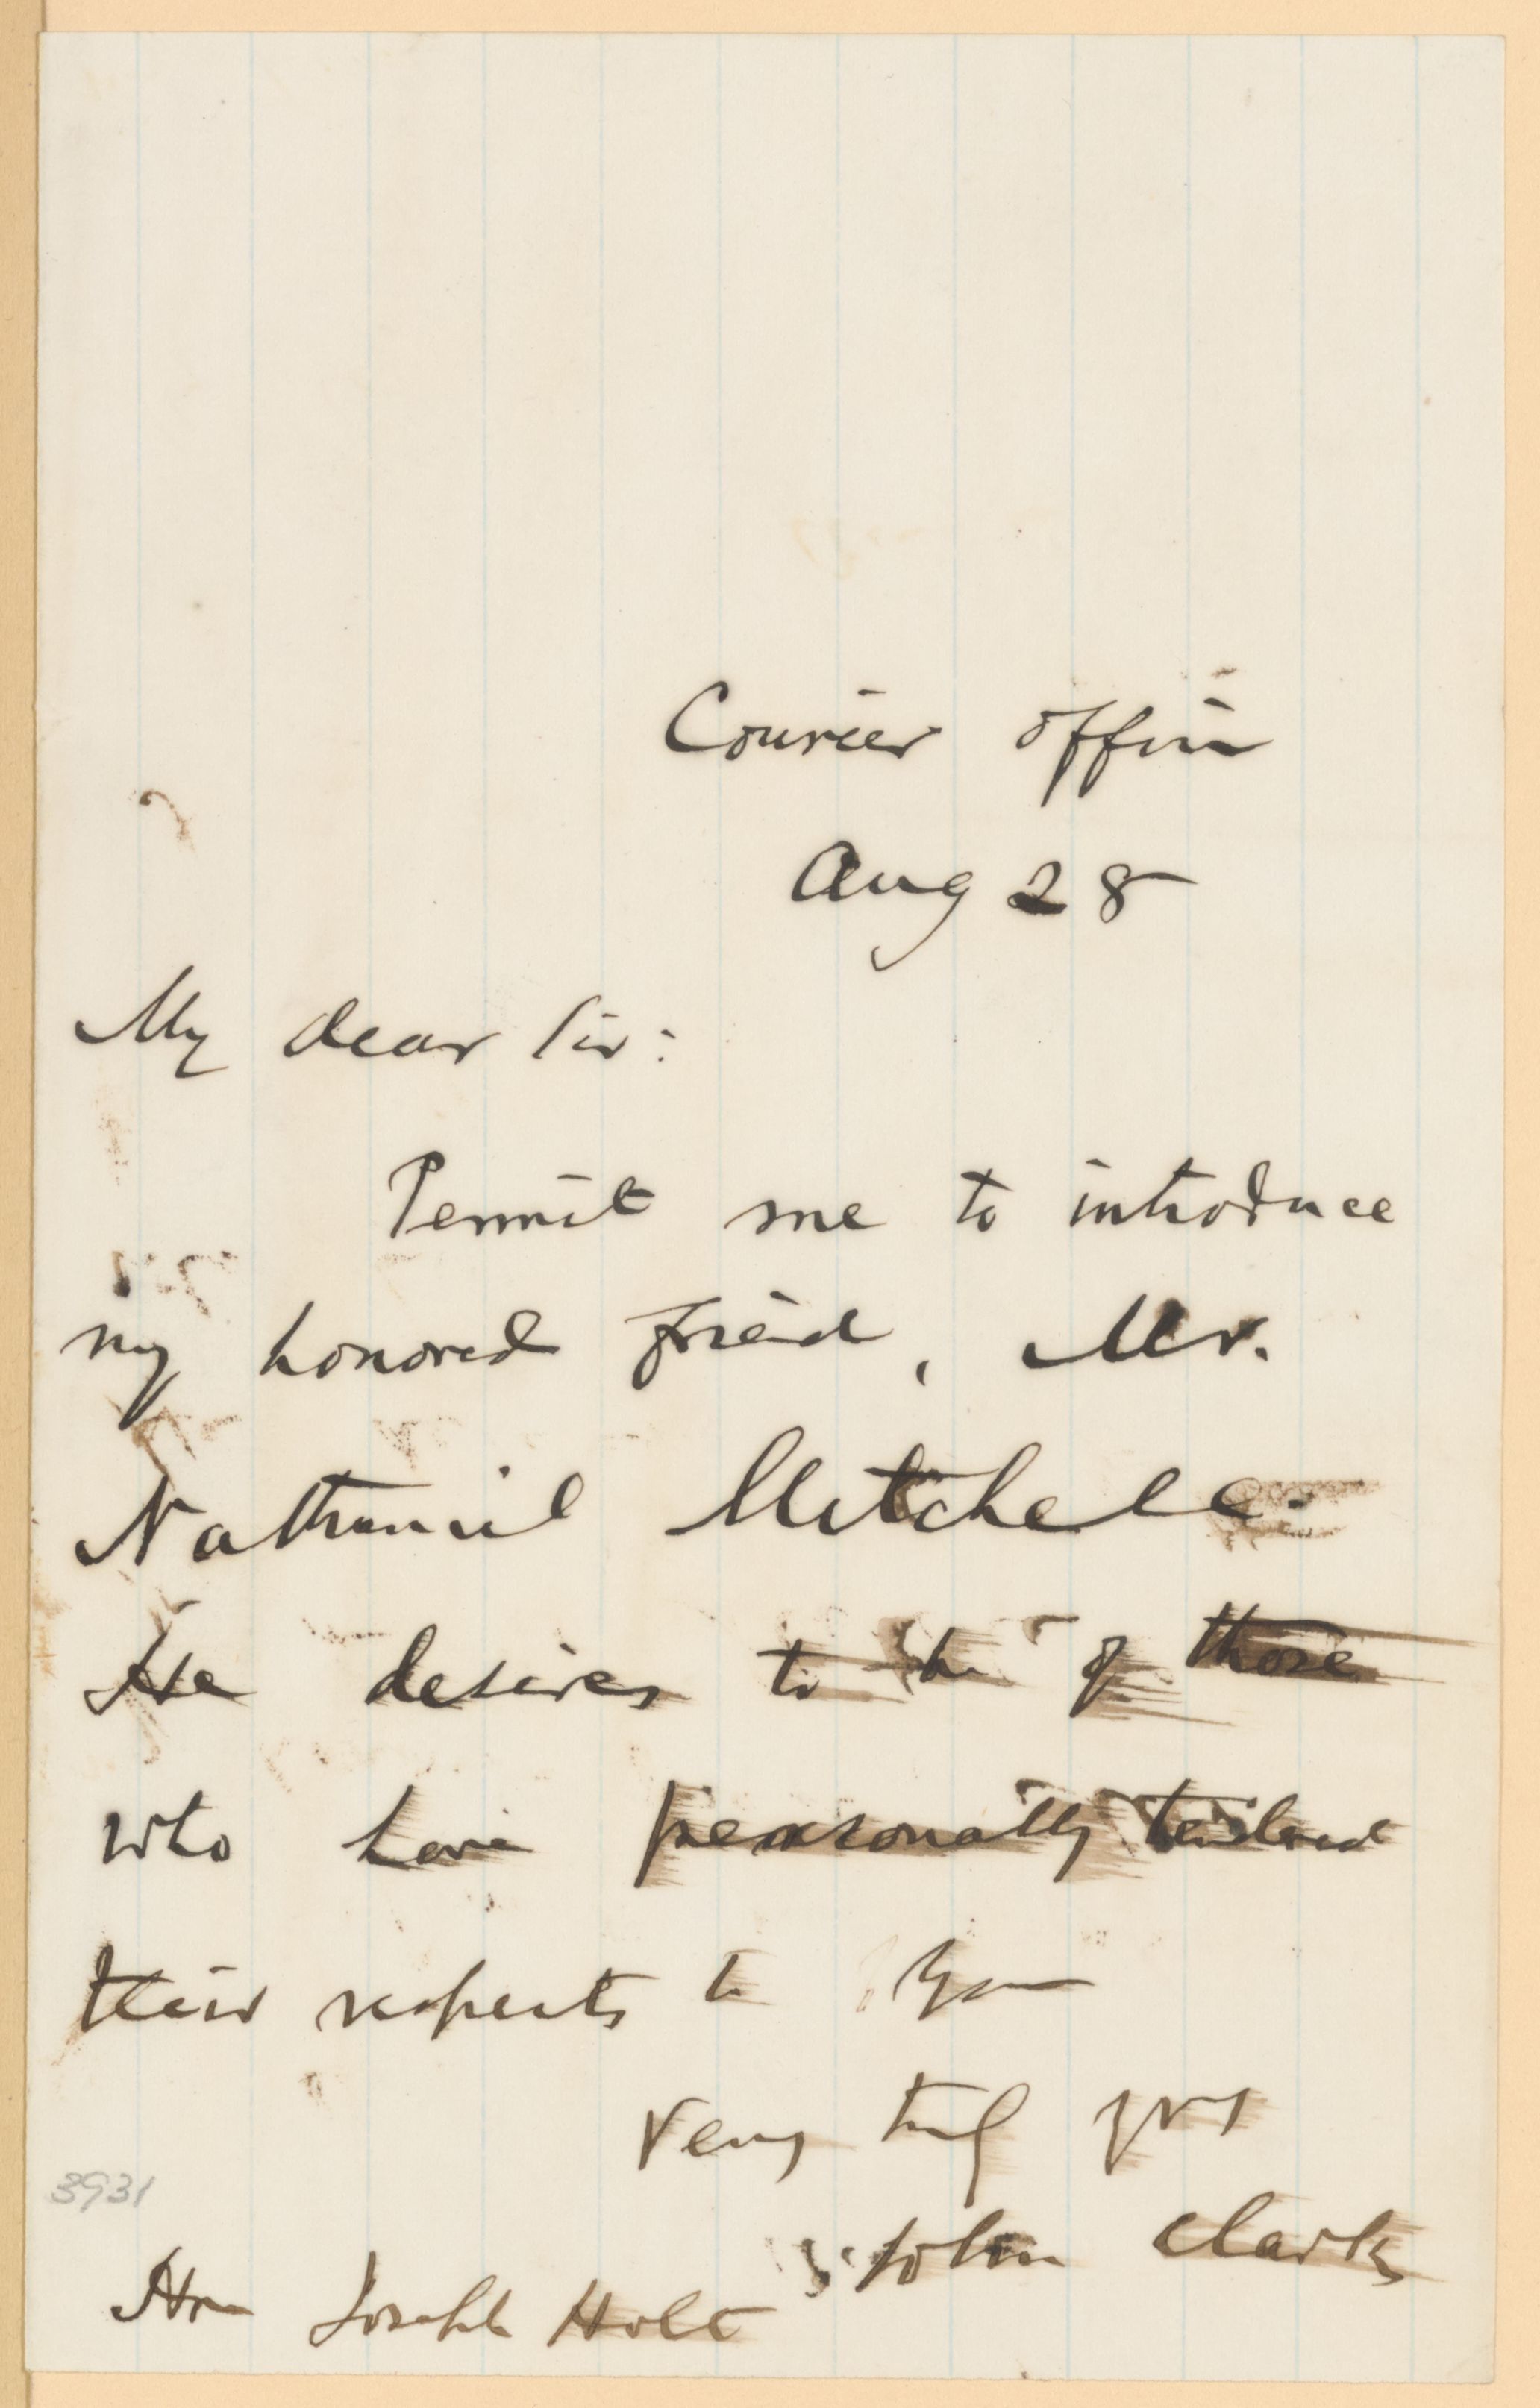 Courier office
Aug 28
My dear Sir:
Permit me to introduce
my honored friend, Mr.
Nathaniel Mitchell.
He desires to be of those
who have personally tendered
their respects to you
Very truly yrs
John Clark
3931
Hon Joseph Holt